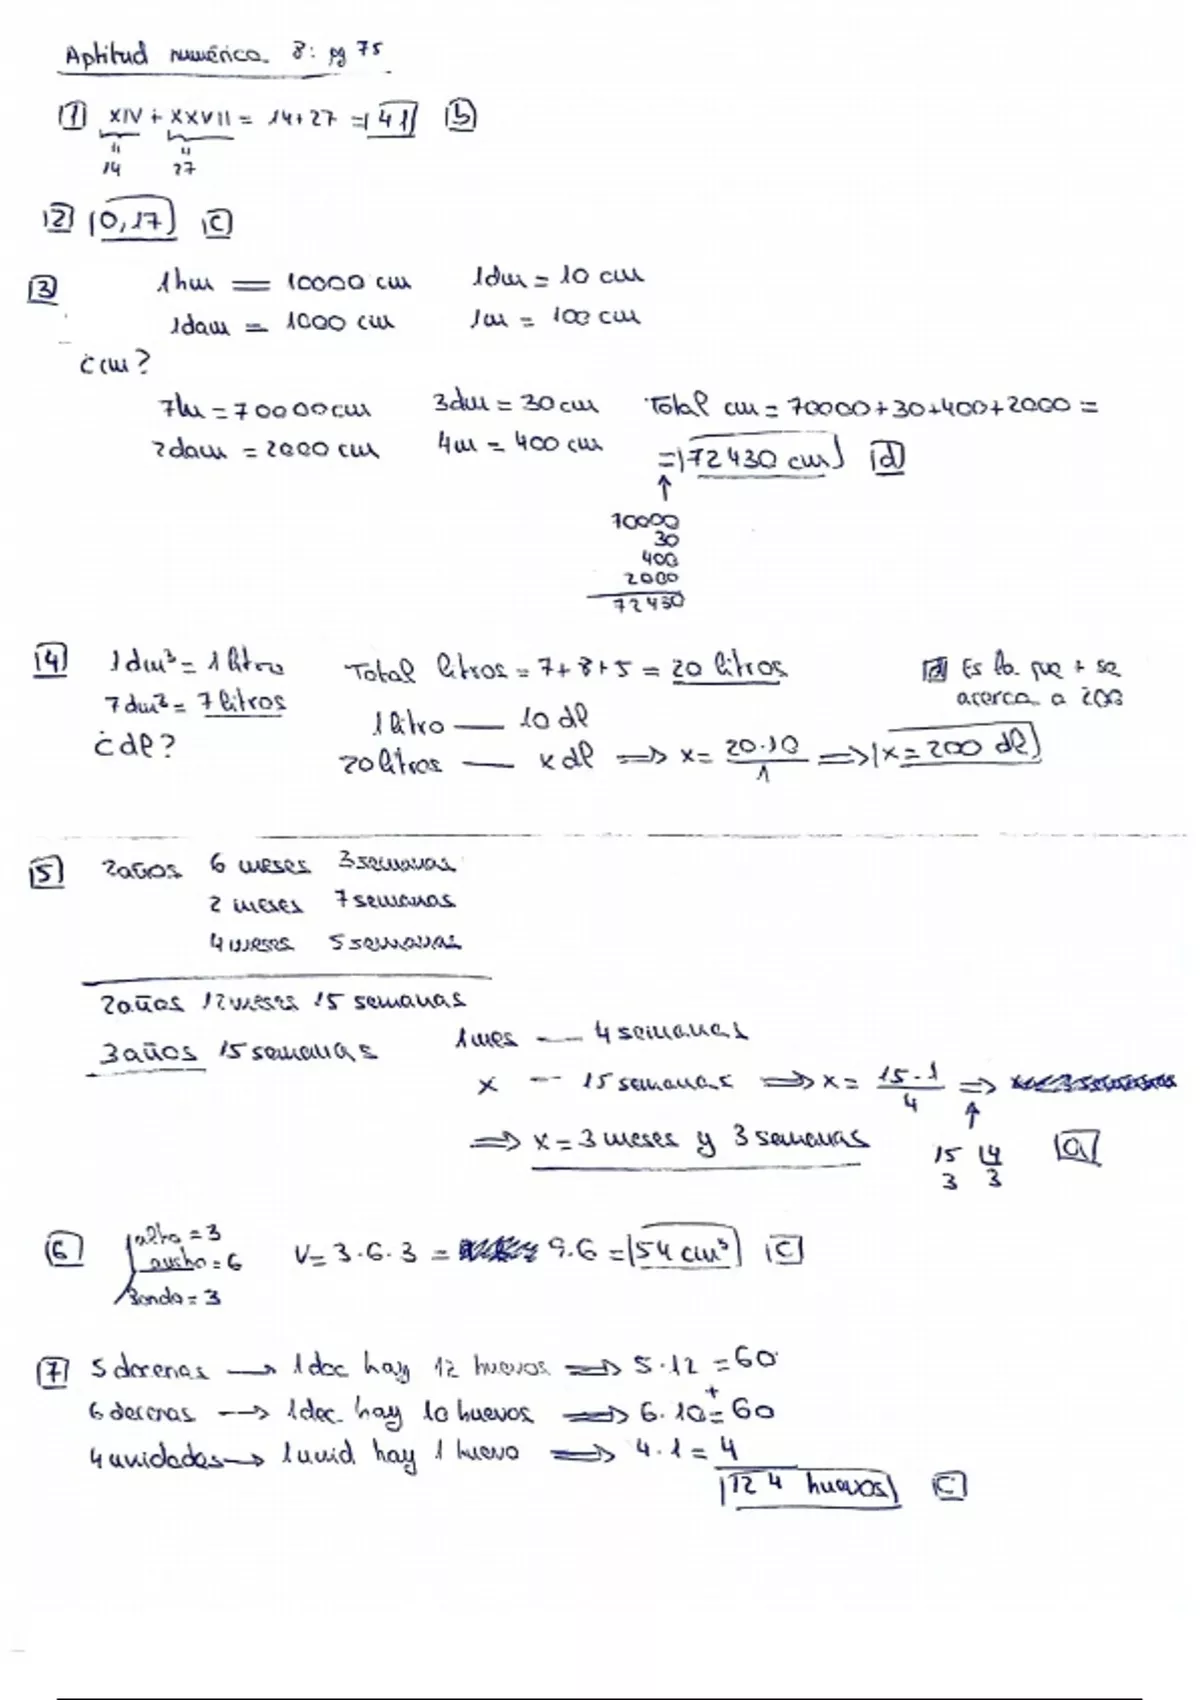 Aptitud numérica. 8: pg 75
1 XIV + XXVII = 14+27 = 41 b
" "
14 27
2 0,17 c
3 1hm = 10000 cm 1dm = 10 cm
1dam = 1000 cm 1m = 100 cm
¿cm?
7h = 70000 cm 3dm = 30 cm Total cm = 70000+30+400+2000 =
2dam = 2000 cm 4m = 400 cm = 72430 cm d
↑
70000
30
400
2000
72430
4 1 dm³ = 1 litro Total litros = 7+8+5 = 20 litros d Es la que + se
7 dm³ = 7 litros acerca a 200
¿dl? 1 litro — 10 dl
20 litros — x dl ⇒ x = 20·10/1 ⇒ x = 200 dl
5 2años 6 meses 3 semanas
2 meses 7 semanas
4 meses 5 semanas
2años 12 meses 15 semanas
3 años 15 semanas 1mes — 4 semanas
x — 15 semanas ⇒ x = 15·1/4 ⇒
↑
⇒ x = 3 meses y 3 semanas 15 14 a
3 3
6 alto = 3
ancho = 6 V = 3·6·3 = 9·6 = 54 cm³ c
hondo = 3
7 5 docenas → 1 doc hay 12 huevos ⇒ 5·12 = 60
+
6 decenas → 1 dec. hay 10 huevos ⇒ 6·10 = 60
4 unidades → 1 unid hay 1 huevo ⇒ 4·1 = 4
124 huevos c